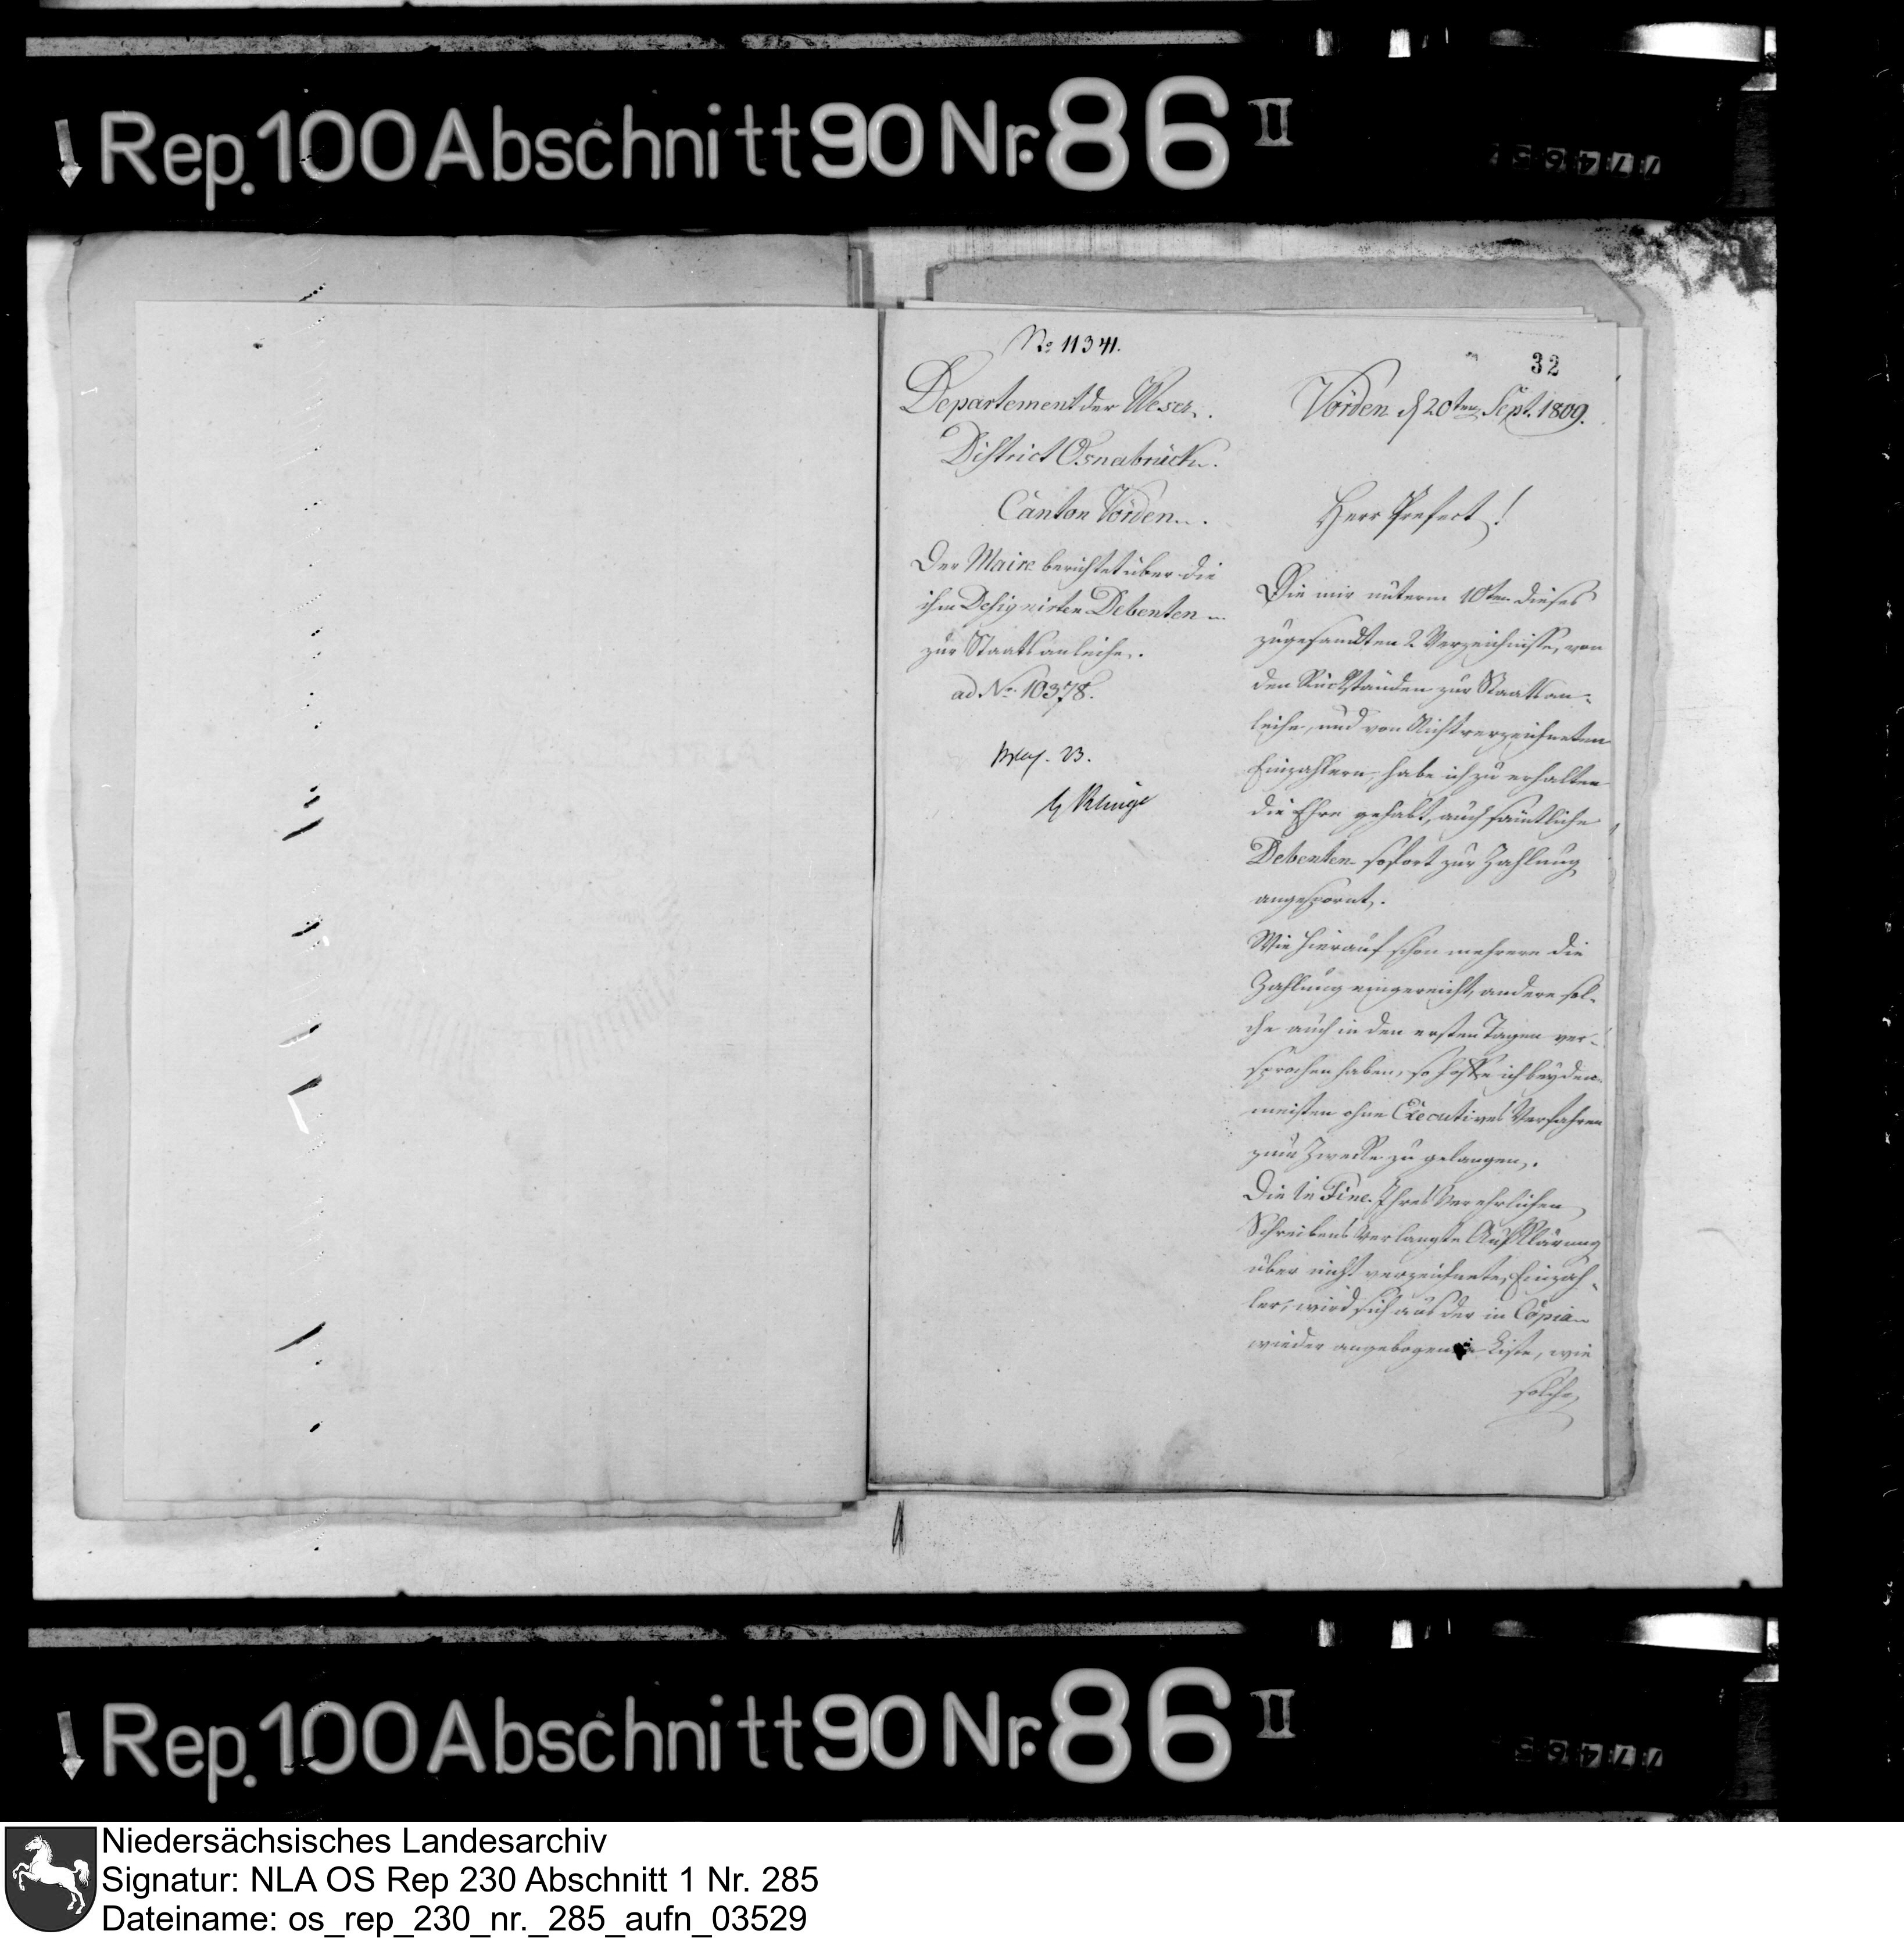 Rep. 100 Abschnitt 90 Nr. 86 II
No 11341.
32
Departement der Weser.
District Osnabrück.
Canton Vörden.
Der Maire berichtet über die
ihm Designirten Debenten
zur Staatsanleihe.
ad No. 10378.
23.
Vörden d 20ten Sept. 1809.
Herr Prefect!
Die mir unterm 10ten dieses
zugesandten 2 Verzeichnisse, von
den Rückständen zur Staatsan-
leihe, und von Nichtverzeichneten
Einzahlern, habe ich zu erhalten
die Ehre gehabt, auch sämtliche
Debenten sofort zur Zahlung
angespornt.
Wie hierauf schon mehrere die
Zahlung eingereicht, andere sol-
che auch in den ersten Tagen ver-
sprochen haben, so hoffe ich bey den
meisten ohne Executives Verfahren
zum Zwecke zu gelangen.
Die in Fine Ihres Verehrlichen
Schreibens verlangte Aufklärung
über nicht verzeichnete, Einzah-
ler, wird sich aus der in Copia
wieder angebogenen Liste, wie
solche
Rep. 100 Abschnitt 90 Nr. 86 II
Niedersächsisches Landesarchiv
Signatur: NLA OS Rep 230 Abschnitt 1 Nr. 285
Dateiname: os_rep_230_nr._285_aufn_03529